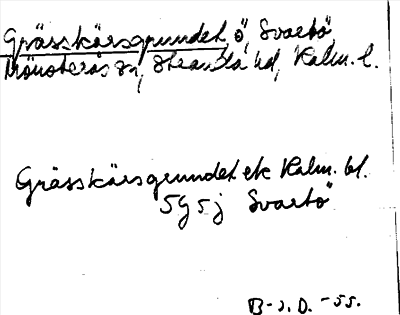 Grässkärsgrundet ö, Svartö,
Mönsterås sn, Stranda hd, Kalm. l.
Grässkärsgrundet ek Kalm. bl.
5G5j Svartö
B-s. D. -55.